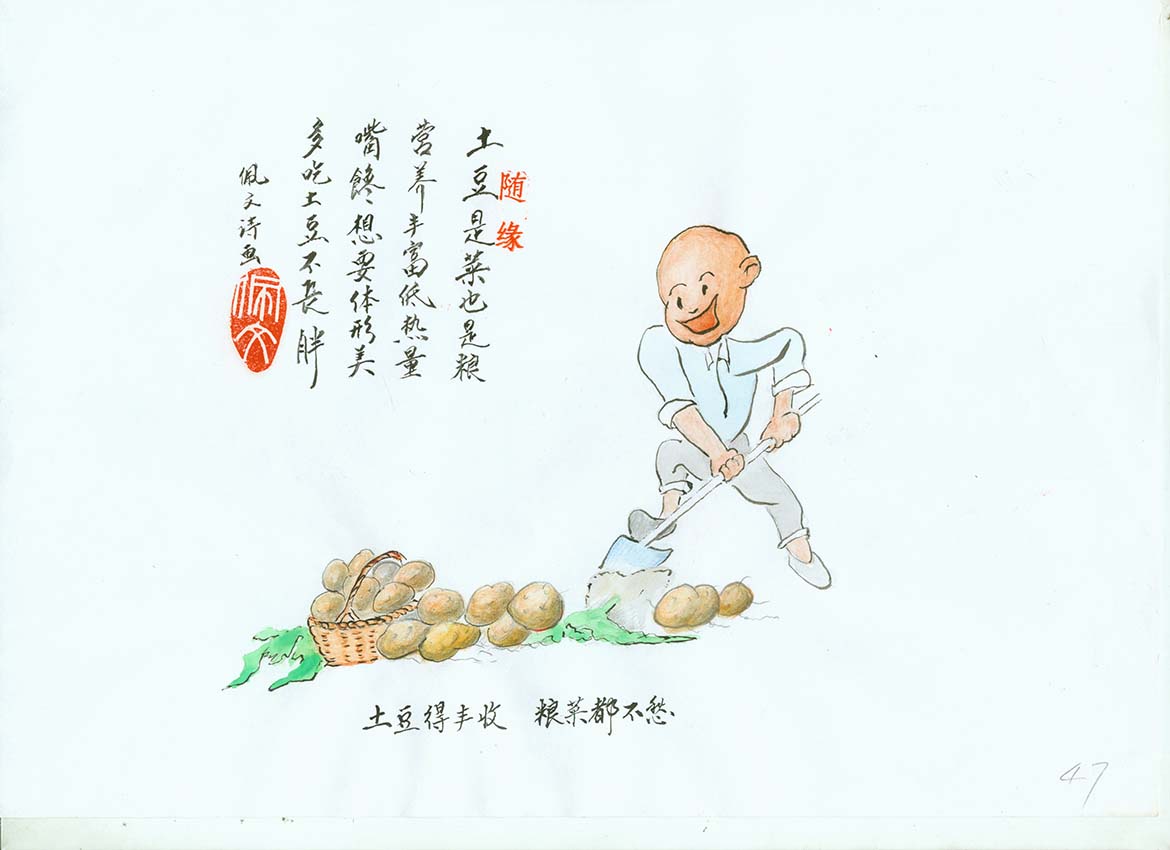 土豆是菜也是粮
随缘
营养丰富低热量
嘴馋想要体形美
多吃土豆不长胖
佩文诗画
佩文
土豆得丰收 粮菜都不愁
47